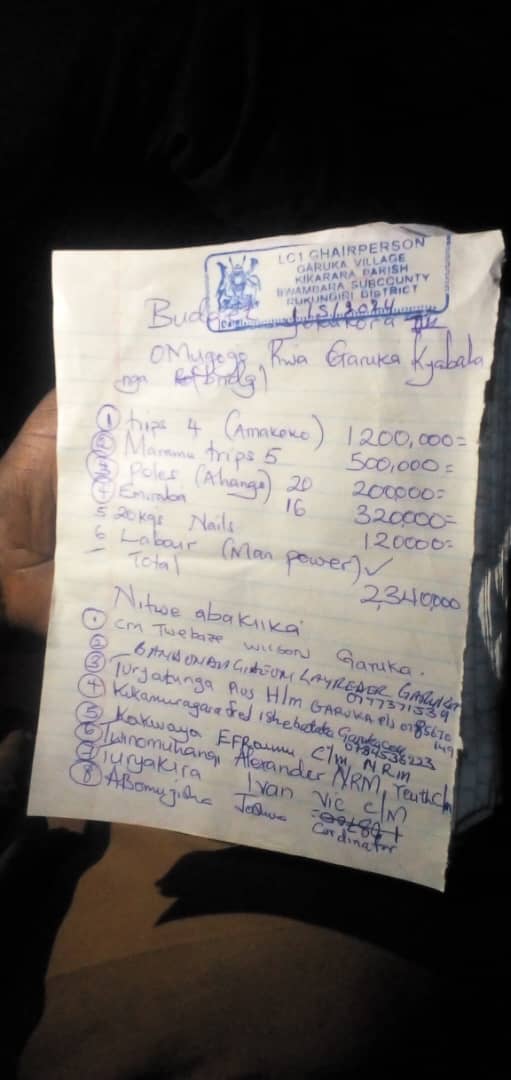 LC1 CHAIRPERSON
GARUKA VILLAGE
KIKARARA PARISH
BWAMBARA SUBCOUNTY
RUKUNGIRI DISTRICT
1/5/2024
Budget Jokukora
OMugogo Rwa Garuka Kyabala
nga bridgl
1 trips 4 (Amakoko) 1200,000=
2 Mammu trips 5 500,000=
3 Poles (Ahanga) 20 200000=
4 Emiraba 16 320000=
5 20kgs Nails 120000=
6 Labour (Man power) ✓
Total 2,340,000
Nitwe abakiika
1 Cm Twebaze wilson Garuka.
2 LAYREADER GARUKA
0777371539
3 Turyatunga Pius H/m GARUKA P/s 0785670
149
4 Fred Ishebatata Garuka
0784536223
5 Kakwaya EFRaimu C/m NRM
6 Twinomuhangi Alexander NRM, Youth C/m
7 Turyakira Ivan Vic C/M
8 ABomugisha Joshua
Cordinator